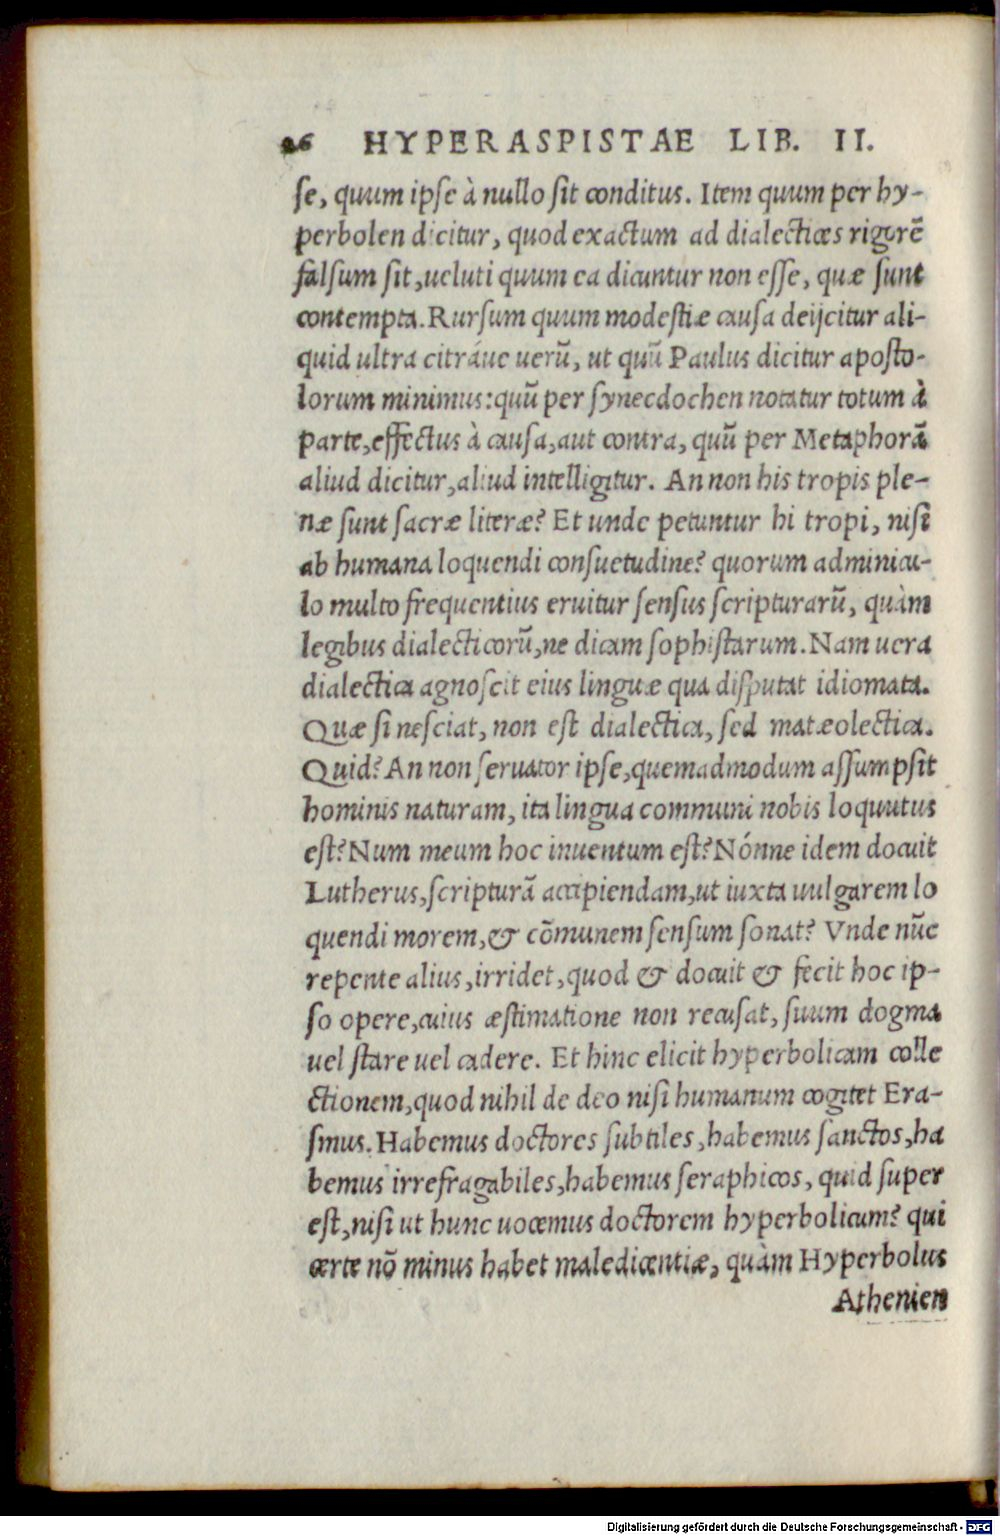 26 HYPERASPISTAE LIB. II.
se, quum ipse à nullo sit conditus. Item quum per hy-
perbolen dicitur, quod exactum ad dialectices rigorē
falsum sit, ueluti quum ea dicuntur non esse, quæ sunt
contempta. Rursum quum modestiæ causa deijcitur ali-
quid ultra citráue uerū, ut quū Paulus dicitur aposto-
lorum minimus: quū per synecdochen notatur totum à
parte, effectus à causa, aut contra, quū per Metaphorā
aliud dicitur, aliud intelligitur. An non his tropis ple-
næ sunt sacræ literæ? Et unde petuntur hi tropi, nisi
ab humana loquendi consuetudine? quorum adminicu-
lo multo frequentius eruitur sensus scripturarū, quàm
legibus dialecticorū, ne dicam sophistarum. Nam uera
dialectica agnoscit eius linguæ qua disputat idiomata.
Quæ si nesciat, non est dialectica, sed matæolectica.
Quid? An non seruator ipse, quemadmodum assumpsit
hominis naturam, ita lingua communi nobis loquutus
est? Num meum hoc inuentum est? Nónne idem docuit
Lutherus, scripturā accipiendam, ut iuxta uulgarem lo
quendi morem, & cōmunem sensum sonat? Vnde nūc
repente alius, irridet, quod & docuit & fecit hoc ip-
so opere, cuius æstimatione non recusat, suum dogma
uel stare uel cadere. Et hinc elicit hyperbolicam colle
ctionem, quod nihil de deo nisi humanum cogitet Era-
smus. Habemus doctores subtiles, habemus sanctos, ha
bemus irrefragabiles, habemus seraphicos, quid super
est, nisi ut hunc uocemus doctorem hyperbolicum? qui
certe nō minus habet maledicentiæ, quàm Hyperbolus
Athenien
Digitalisierung gefördert durch die Deutsche Forschungsgemeinschaft - DFG